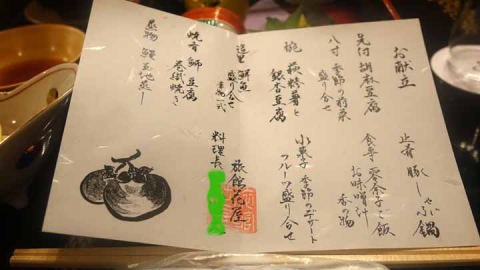 お献立
先付 胡麻豆腐
八寸 季節の前菜
盛り合せ
椀 萩真薯と
銀杏豆腐
造里 鮮魚
盛り合せ
妻物一式
焼肴 鰤 豆腐
巻織焼き
蒸物 鰻玉地蒸し
止肴 豚しゃぶ鍋
食事 零余子ご飯
お味噌汁
香の物
水菓子 季節のデザート
フルーツ盛り合せ
旅館花屋
料理長